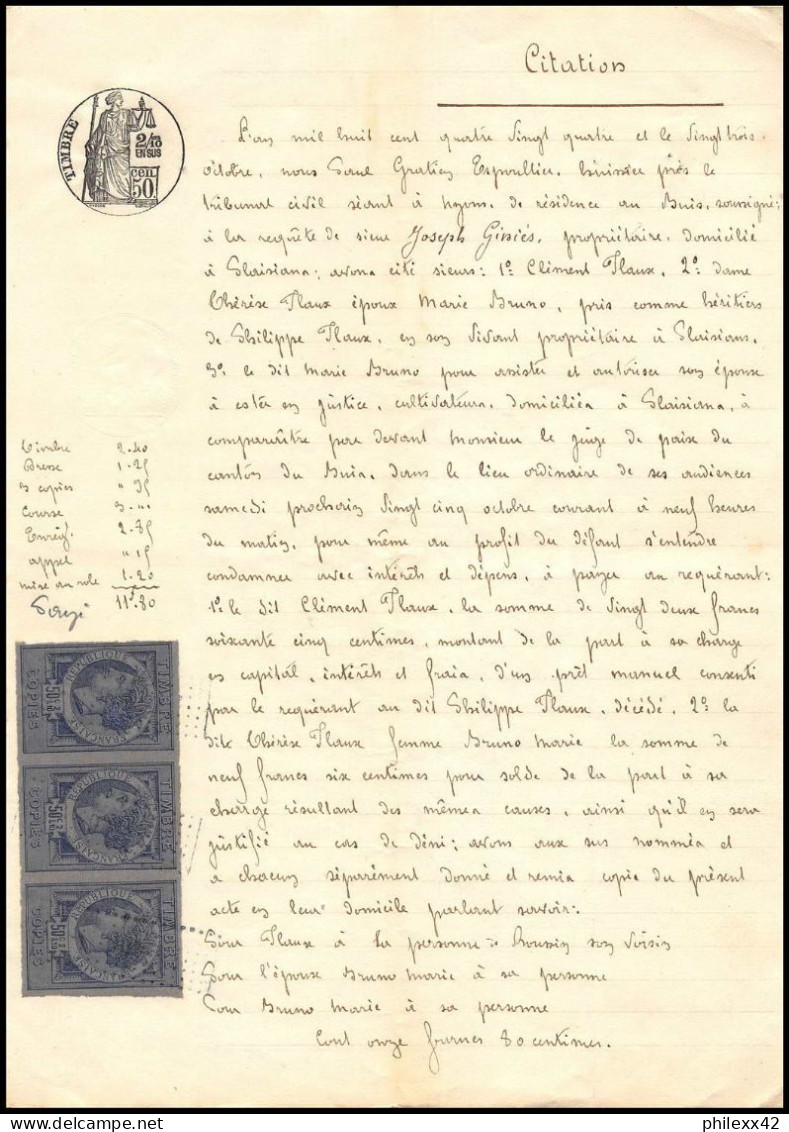 Citation
TIMBRE
2/10
EN SUS
cen
50
L'an mil huit cent quatre vingt quatre et le vingt trois
octobre, nous Paul Gratien Espoullier, huissier près le
tribunal civil séant à Nyons, de résidence au Buis, soussigné;
à la requête de sieur Joseph Giniés, propriétaire, domicilié
à Plaisians; avons cité sieurs: 1º Clément Flaux, 2º dame
Thérèse Flaux époux Marie Bruno, pris comme héritiers
de Philippe Flaux, en son vivant propriétaire à Plaisians,
3º le dit Marie Bruno pour assister et autoriser son épouse
à ester en justice, cultivateurs, domiciliés à Plaisians, à
comparaître par devant monsieur le juige de paix du
canton du Buis, dans le lieu ordinaire de ses audiences
samedi prochain vingt cinq octobre courant à neuf heures
du matin, pour même au profit du défaut s'entendre
condamner avec intérêts et dépens, à payer au requérant:
1º le dit Clément Flaux, la somme de vingt deux francs
soixante cinq centimes, montant de la part à sa charge
en capital, intérêts et frais, d'un prêt manuel consenti
par le requérant au dit Philippe Flaux, décédé, 2º la
dite Thérèse Flaux femme Bruno Marie la somme de
neuf francs six centimes pour solde de la part à sa
charge résultant des mêmes causes, ainsi qu'il en sera
justifié au cas de déni; avons aux sus nommés et
à chacun séparément donné et remis copie du présent
acte en leur domicile parlant savoir:
Pour Flaux à la personne de Roussin son voisin
Pour l'épouse Bruno Marie à sa personne
Pour Bruno Marie à sa personne
Cout onze francs 80 centimes.
Timbre 2.40
1.25
3 copies " 75
course 3. ""
Enreg. 2.85
appel " 15
mise au role 1.20
11f.80
TIMBRE
REPUBLIQUE
FRANÇAISE
COPIES
TIMBRE
REPUBLIQUE
FRANÇAISE
COPIES
TIMBRE
REPUBLIQUE
FRANÇAISE
COPIES
philexx42